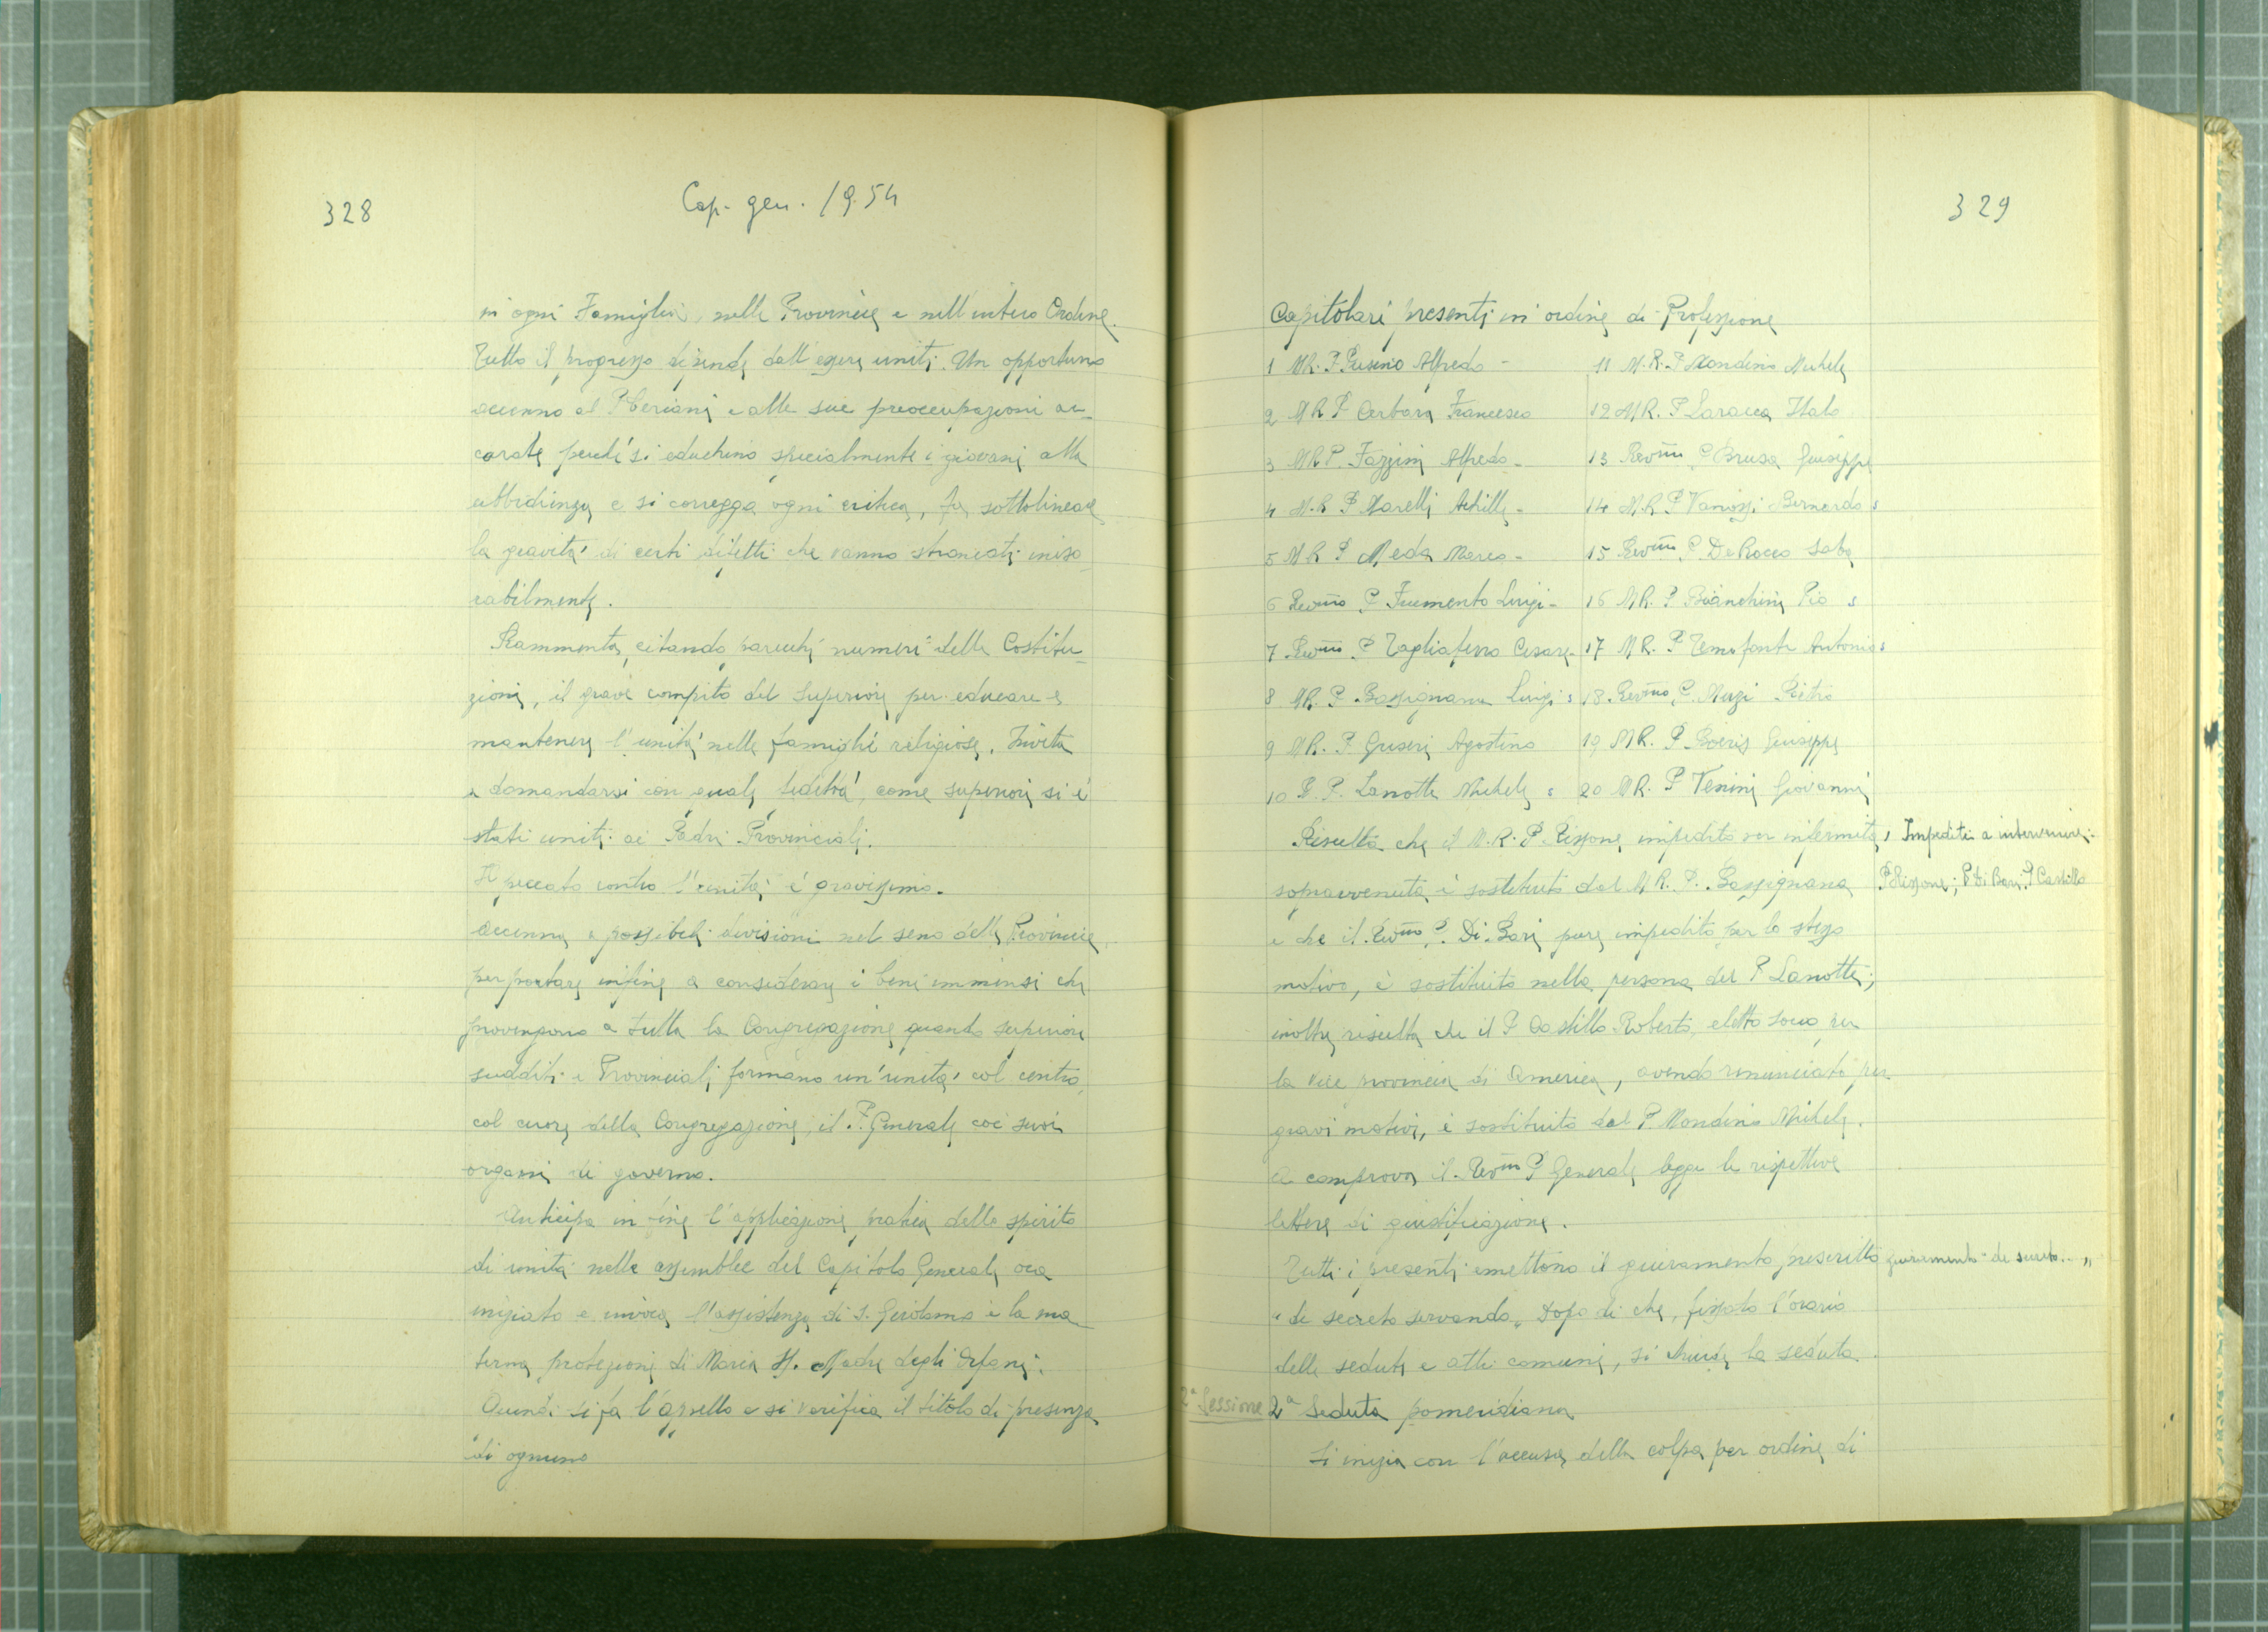 328
Cap. gen. 1954
in ogni Famiglia, nelle Provincie e nell'intero Ordine.
Tutto il progresso dipende dall'essere uniti. Un opportuno
accenno al P. Ceriani e alle sue preoccupazioni ac-
corate perché si educhino specialmente i giovani alla
ubbidienza e si corregga ogni critica, fa sottolineare
la gravità di certi difetti che vanno stroncati ineso
rabilmente.
Rammenta, citando parecchi numeri delle Costitu-
zioni, il grave compito del Superiore per educare e
mantenere l'unità nelle famiglie religiose. Invita
a domandarsi con quale fedeltà, come superiori si è
stati uniti ai Padri Provinciali.
Il peccato contro l'unità è gravissimo.
Accenna a possibili divisioni nel seno delle Provincie,
per portare infine a considerare i beni immensi che
provengono a tutta la Congregazione quando superiori
sudditi e Provinciali formano un'unità col centro,
col cuore della Congregazione, il P. Generale coi suoi
organi di governo.
Anticipa in fine l'applicazione pratica dello spirito
di unità nelle assemblee del Capitolo Generale ora
iniziato e invoca l'assistenza di S. Girolamo e la ma-
terna protezione di Maria SS. Madre degli Orfani.
Quindi si fa l'appello e si verifica il titolo di presenza
di ognuno
329
Capitolari presenti in ordine di Professione
1 M.R. P. Pusino Alfredo -
2 M.R. P. Cerbara Francesco
3 M.R. P. Fazzini Alfredo -
4 M.R. P. Marelli Achille -
5 M.R. P. Meda Marco -
6 Rev.mo P. Frumento Luigi -
7 Rev.mo P. Tagliaferro Cesare -
8 M.R. P. Bassignana Luigi s
9 M.R. P. Griseri Agostino
10 R. P. Lanotte Michele s
11 M.R. P. Mondino Michele
12 M.R. P. Laracca Italo
13 Rev.mo P. Brusa Giuseppe
14 M.R. P. Vanossi Bernardo s
15 Rev.mo P. De Rocco Saba
16 M.R. P. Bianchini Pio s
17 M.R. P. Temofonte Antonio s
18 Rev.mo P. Muzi Pietro
19 M.R. P. Boeris Giuseppe
20 M.R. P. Venini Giovanni
Risulta che il M.R. P. Rissone impedito per infermità
sopravvenuta è sostituito dal M.R. P. Bassignana
e che il Rev.mo P. Di Bari pure impedito per lo stesso
motivo, è sostituito nella persona del P. Lanotte;
inoltre risulta che il P. Castillo Roberto, eletto socio per
la vice provincia di America, avendo rinunciato per
gravi motivi, è sostituito dal P. Mondino Michele.
A comprova il Rev.mo P. Generale legge le rispettive
lettere di giustificazione.
Tutti i presenti emettono il giuramento prescritto
"de secreto servando". Dopo di che, fissato l'orario
delle sedute e atti comuni, si chiude la seduta.
Impediti a intervenire:
P. Rissone; P. Di Bari, P. Castillo
giuramento "de secreto..."
2ª Sessione
2ª Seduta pomeridiana
Si inizia con l'accusa della colpa per ordine di